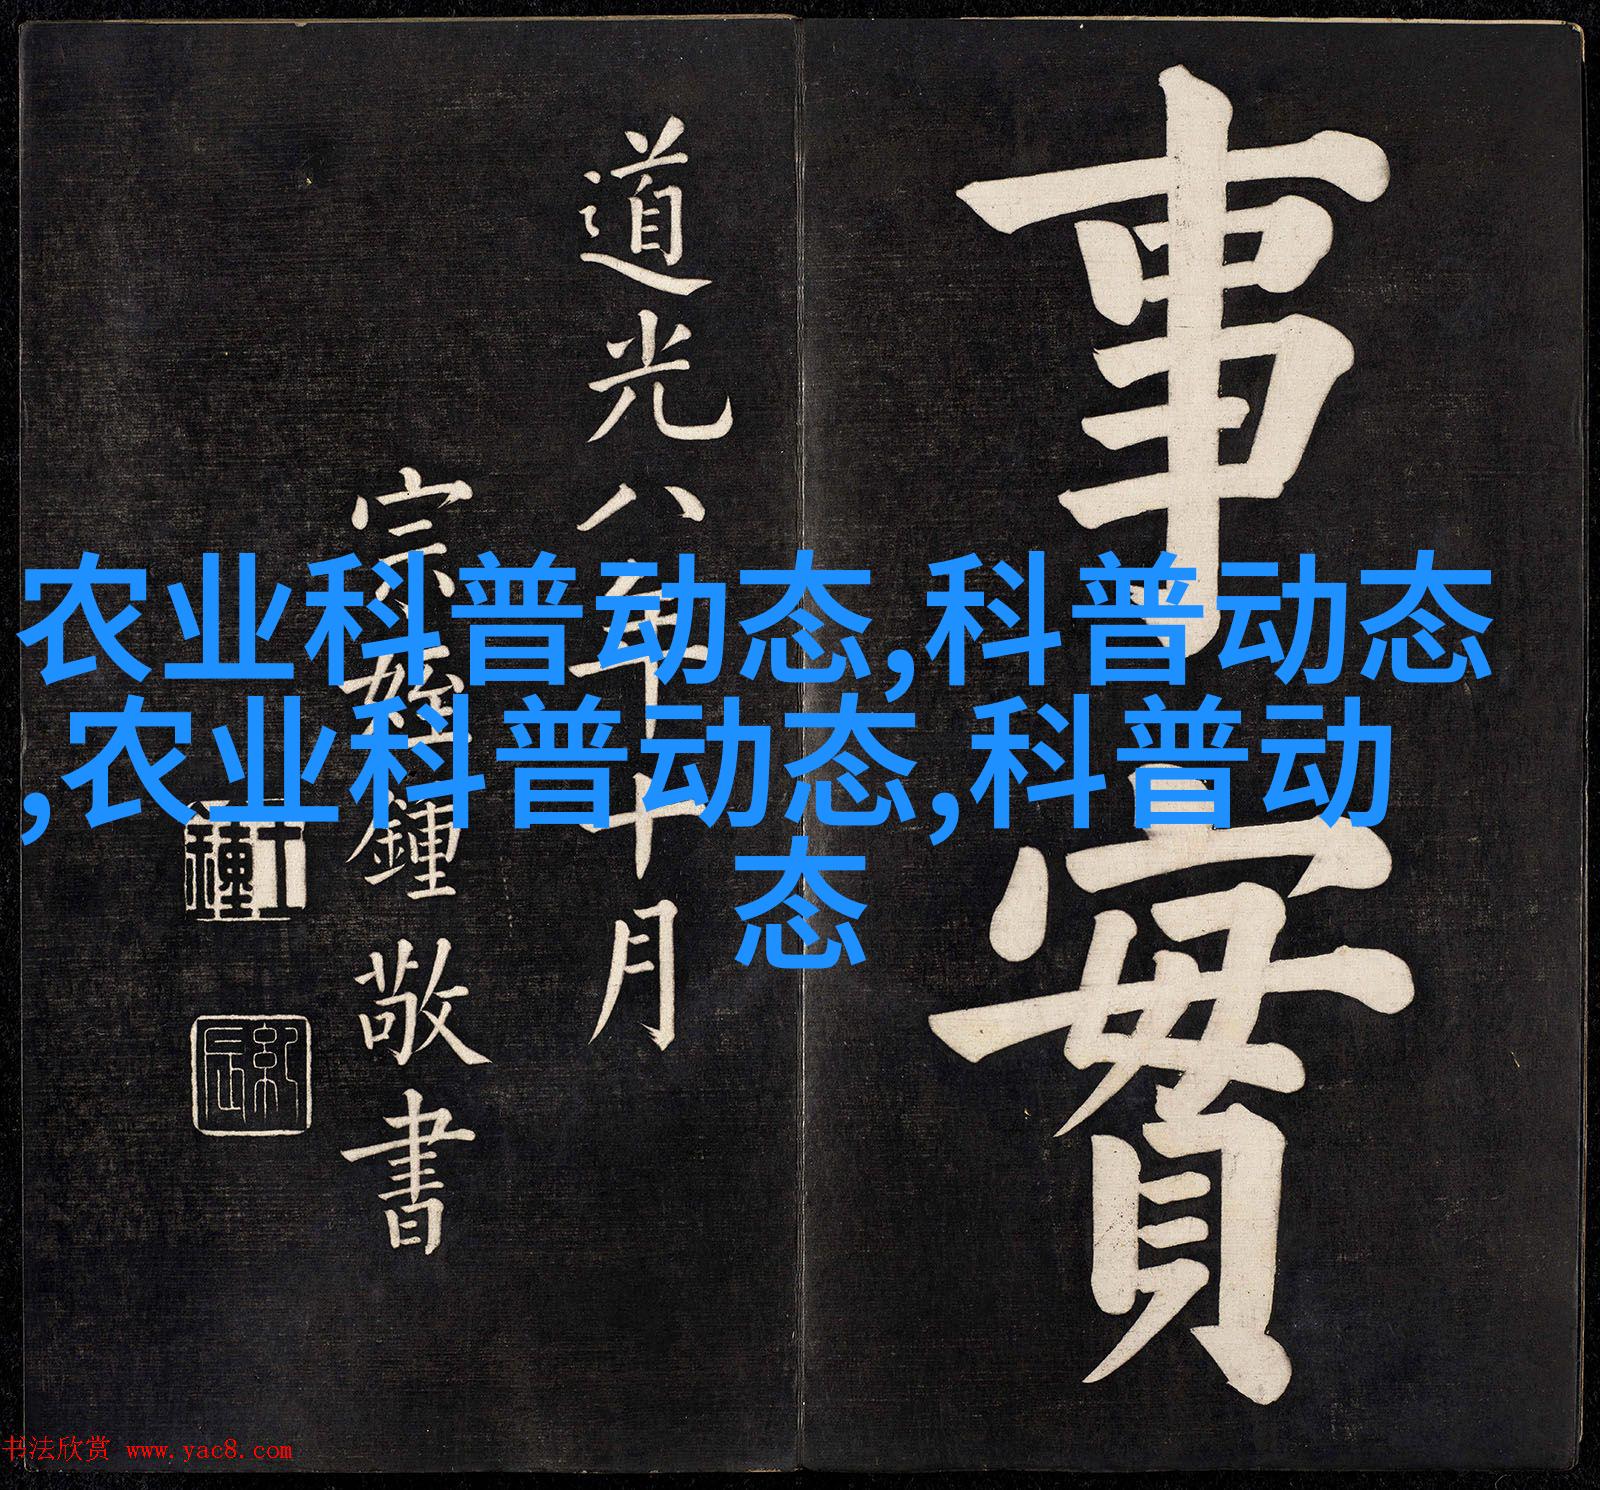 事實
道光八年十月
宗姪鍾敬書
农业科普动态,科普动态
,农业科普动态,科普动
态
书法欣赏 www.yac8.com